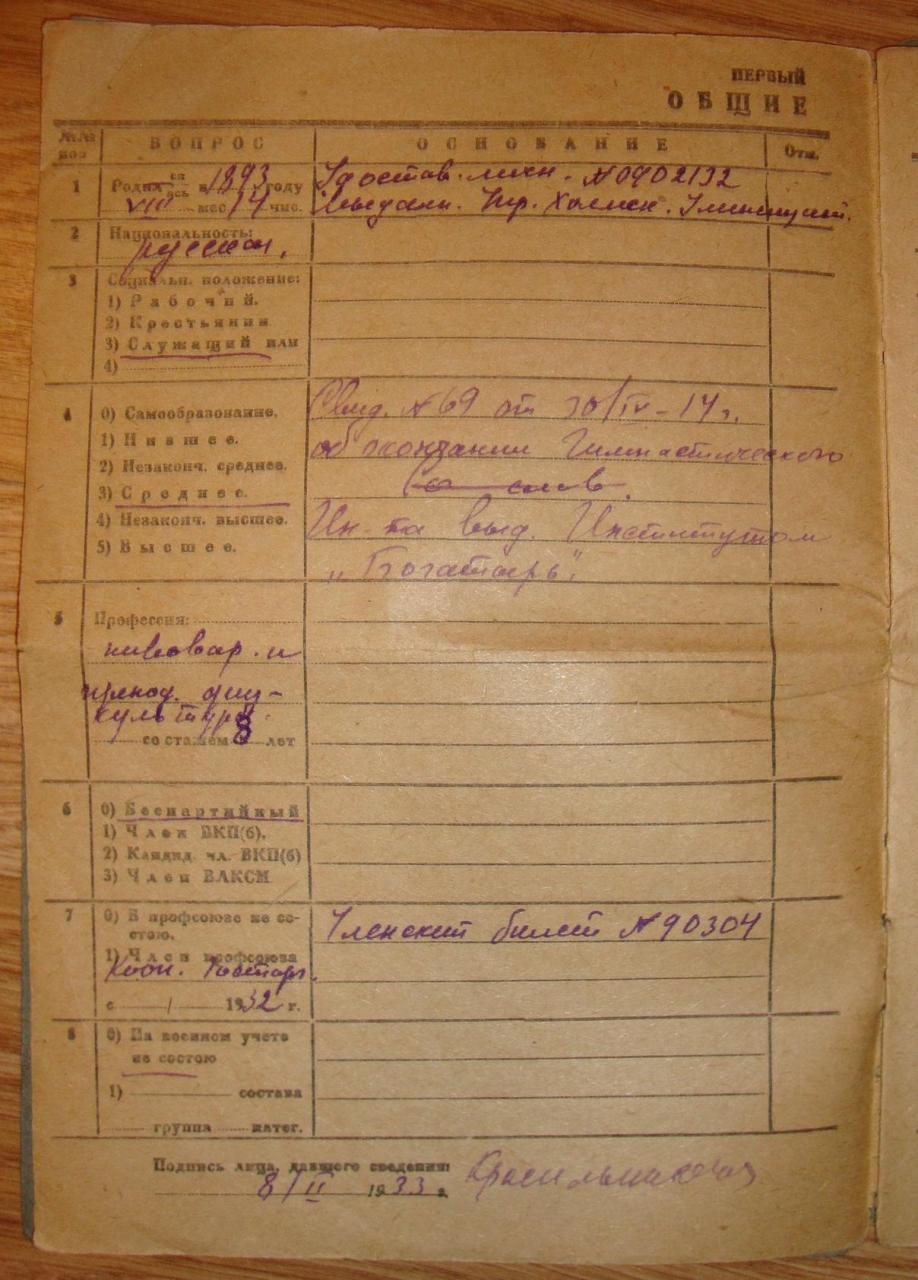 ПЕРВЫЙ
ОБЩИЕ
№№ ВОПРОС ОСНОВАНИЕ Отм.
1 Родил ся ась в 1893 году Удостов. личн. №0902132
VIII мес 14 чис. Выдано.
2 Национальность:
русская.
3 Социальн. положение:
1) Рабочий.
2) Крестьянин
3) Служащий или
4)
4 0) Самообразование. Свид. №69 от 30/IV-14г.
1) Низшее. об окончании Гимнастического
2) Незаконч. среднее.
3) Среднее.
4) Незаконч. высшее. Ин-та выд. Институтом
5) Высшее. „Богатырь".
5 Профессия:
пивовар. и
препод. физ-
культуры.
со стажем 8 лет
6 0) Беспартийный
1) Член ВКП(б).
2) Кандид. чл. ВКП(б)
3) Член ВЛКСМ.
7 0) В профсоюзе не со- Членский билет №90304
стою.
1) Член профсоюза
Кооп. Госторг.
с 1932 г.
8 0) На военном учете
не состою
1) состава
группа катег.
Подпись лица, давшего сведения: Красильникова
8/II 1933 г.